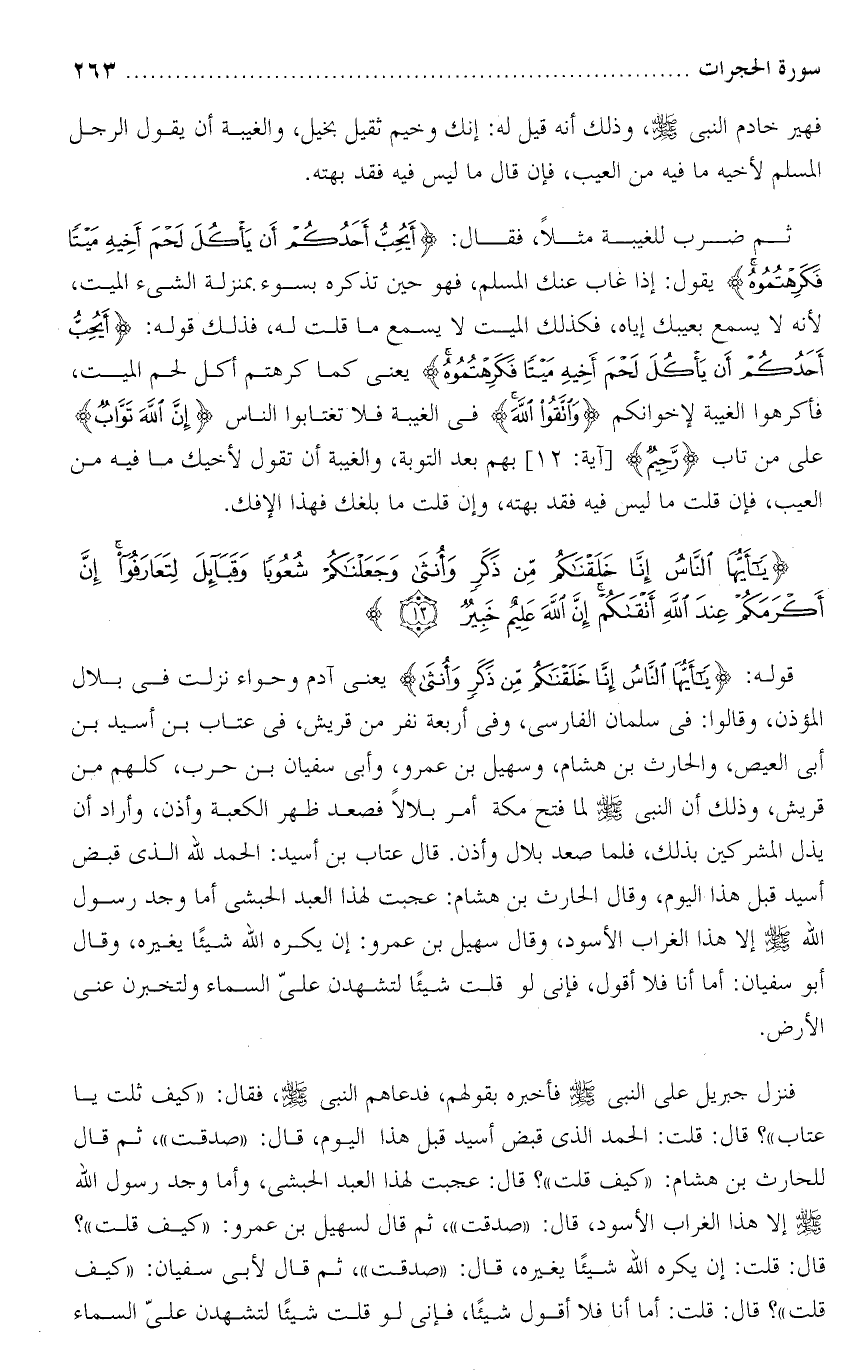 سورة الحجرات ........................................................................ ٢٦٣
فهير خادم النبى ﷺ، وذلك أنه قيل له: إنك وخيم ثقيل بخيل، والغيبة أن يقول الرجل
المسلم لأخيه ما فيه من العيب، فإن قال ما ليس فيه فقد بهته.
ثم ضرب للغيبة مثلاً، فقال: ﴿أَيُحِبُّ أَحَدُكُمْ أَن يَأْكُلَ لَحْمَ أَخِيهِ مَيْتًا
فَكَرِهْتُمُوهُ﴾ يقول: إذا غاب عنك المسلم، فهو حين تذكره بسوء بمنزلة الشىء الميت،
لأنه لا يسمع بعيبك إياه، فكذلك الميت لا يسمع ما قلت له، فذلك قوله: ﴿أَيُحِبُّ
أَحَدُكُمْ أَن يَأْكُلَ لَحْمَ أَخِيهِ مَيْتًا فَكَرِهْتُمُوهُ﴾ يعنى كما كرهتم أكل لحم الميت،
فأكرهوا الغيبة لإخوانكم ﴿وَاتَّقُوا اللَّهَ﴾ فى الغيبة فلا تغتابوا الناس ﴿إِنَّ اللَّهَ تَوَّابٌ﴾
على من تاب ﴿رَّحِيمٌ﴾ [آية: ١٢] بهم بعد التوبة، والغيبة أن تقول لأخيك ما فيه من
العيب، فإن قلت ما ليس فيه فقد بهته، وإن قلت ما بلغك فهذا الإفك.
﴿يَٰٓأَيُّهَا ٱلنَّاسُ إِنَّا خَلَقْنَٰكُم مِّن ذَكَرٍ وَأُنثَىٰ وَجَعَلْنَٰكُمْ شُعُوبًا وَقَبَآئِلَ لِتَعَارَفُوٓا۟ ۚ إِنَّ
أَكْرَمَكُمْ عِندَ ٱللَّهِ أَتْقَىٰكُمْ ۚ إِنَّ ٱللَّهَ عَلِيمٌ خَبِيرٌ ١٣﴾
قوله: ﴿يَٰٓأَيُّهَا ٱلنَّاسُ إِنَّا خَلَقْنَٰكُم مِّن ذَكَرٍ وَأُنثَىٰ﴾ يعنى آدم وحواء نزلت فى بلال
المؤذن، وقالوا: فى سلمان الفارسى، وفى أربعة نفر من قريش، فى عتاب بن أسيد بن
أبى العيص، والحارث بن هشام، وسهيل بن عمرو، وأبى سفيان بن حرب، كلهم من
قريش، وذلك أن النبى ﷺ لما فتح مكة أمر بلالاً فصعد ظهر الكعبة وأذن، وأراد أن
يذل المشركين بذلك، فلما صعد بلال وأذن. قال عتاب بن أسيد: الحمد لله الذى قبض
أسيد قبل هذا اليوم، وقال الحارث بن هشام: عجبت لهذا العبد الحبشى أما وجد رسول
الله ﷺ إلا هذا الغراب الأسود، وقال سهيل بن عمرو: إن يكره الله شيئًا يغيره، وقال
أبو سفيان: أما أنا فلا أقول، فإنى لو قلت شيئًا لتشهدن علىّ السماء ولتخبرن عنى
الأرض.
فنزل جبريل على النبى ﷺ فأخبره بقولهم، فدعاهم النبى ﷺ، فقال: «كيف ثلت يا
عتاب»؟ قال: قلت: الحمد الذى قبض أسيد قبل هذا اليوم، قال: «صدقت»، ثم قال
للحارث بن هشام: «كيف قلت»؟ قال: عجبت لهذا العبد الحبشى، وأما وجد رسول الله
ﷺ إلا هذا الغراب الأسود، قال: «صدقت»، ثم قال لسهيل بن عمرو: «كيف قلت»؟
قال: قلت: إن يكره الله شيئًا يغيره، قال: «صدقت»، ثم قال لأبى سفيان: «كيف
قلت»؟ قال: قلت: أما أنا فلا أقول شيئًا، فإنى لو قلت شيئًا لتشهدن علىّ السماء